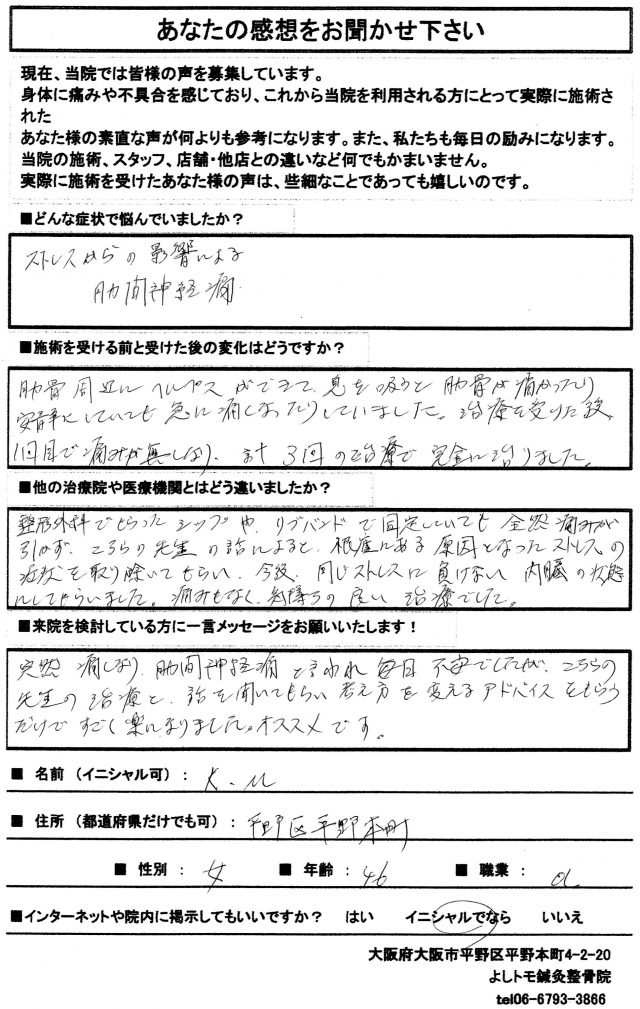 あなたの感想をお聞かせ下さい
現在、当院では皆様の声を募集しています。
身体に痛みや不具合を感じており、これから当院を利用される方にとって実際に施術さ
れた
あなた様の素直な声が何よりも参考になります。また、私たちも毎日の励みになります。
当院の施術、スタッフ、店舗・他店との違いなど何でもかまいません。
実際に施術を受けたあなた様の声は、些細なことであっても嬉しいのです。
■どんな症状で悩んでいましたか?
ストレスからの影響による
肋間神経痛
■施術を受ける前と受けた後の変化はどうですか?
肋骨周辺にヘルペスができて、息を吸うと肋骨が痛かったり
安静にしていても急に痛くなったりしていました。治療を受けた後、
1回目で痛みが無くなり、計3回の治療で完全に治りました。
■他の治療院や医療機関とはどう違いましたか?
整形外科でもらったシップや、リブバンドで固定していても全然痛みが
引かず、こちらの先生の話によると、根底にある原因となったストレスの
症状を取り除いてもらい、今後、同じストレスに負けない内臓の状態
にしてもらいました。痛みもなく、気持ちの良い治療でした。
■来院を検討している方に一言メッセージをお願いいたします!
突然痛くなり、肋間神経痛と言われ毎日不安でしたが、こちらの
先生の治療と、話を聞いてもらい考え方を変えるアドバイスをもらう
だけですごく楽になりました。オススメです。
■ 名前(イニシャル可): K.M
■ 住所(都道府県だけでも可): 平野区平野本町
■ 性別: 女 ■ 年齢: 46 ■ 職業:
■インターネットや院内に掲示してもいいですか? はい イニシャルでなら いいえ
大阪府大阪市平野区平野本町4-2-20
よしトモ鍼灸整骨院
tel06-6793-3866